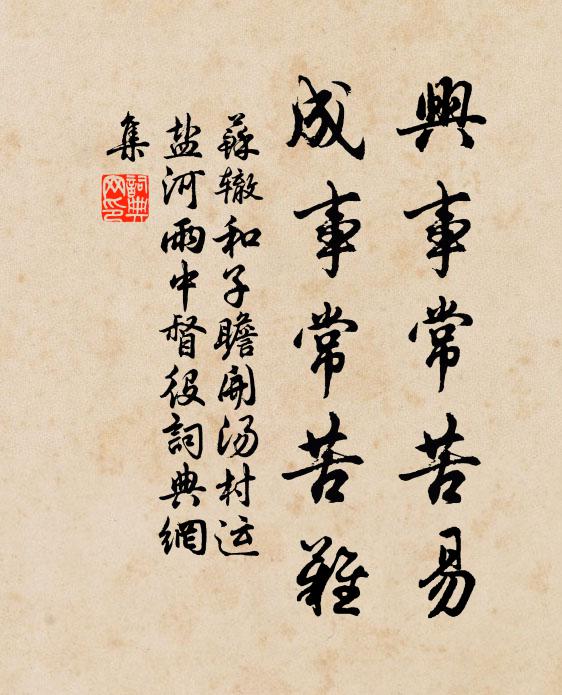 興事常苦易
成事常苦難
蘇辙和子瞻開汤村运
盐河雨中督役詞典網
集
詞典
网印